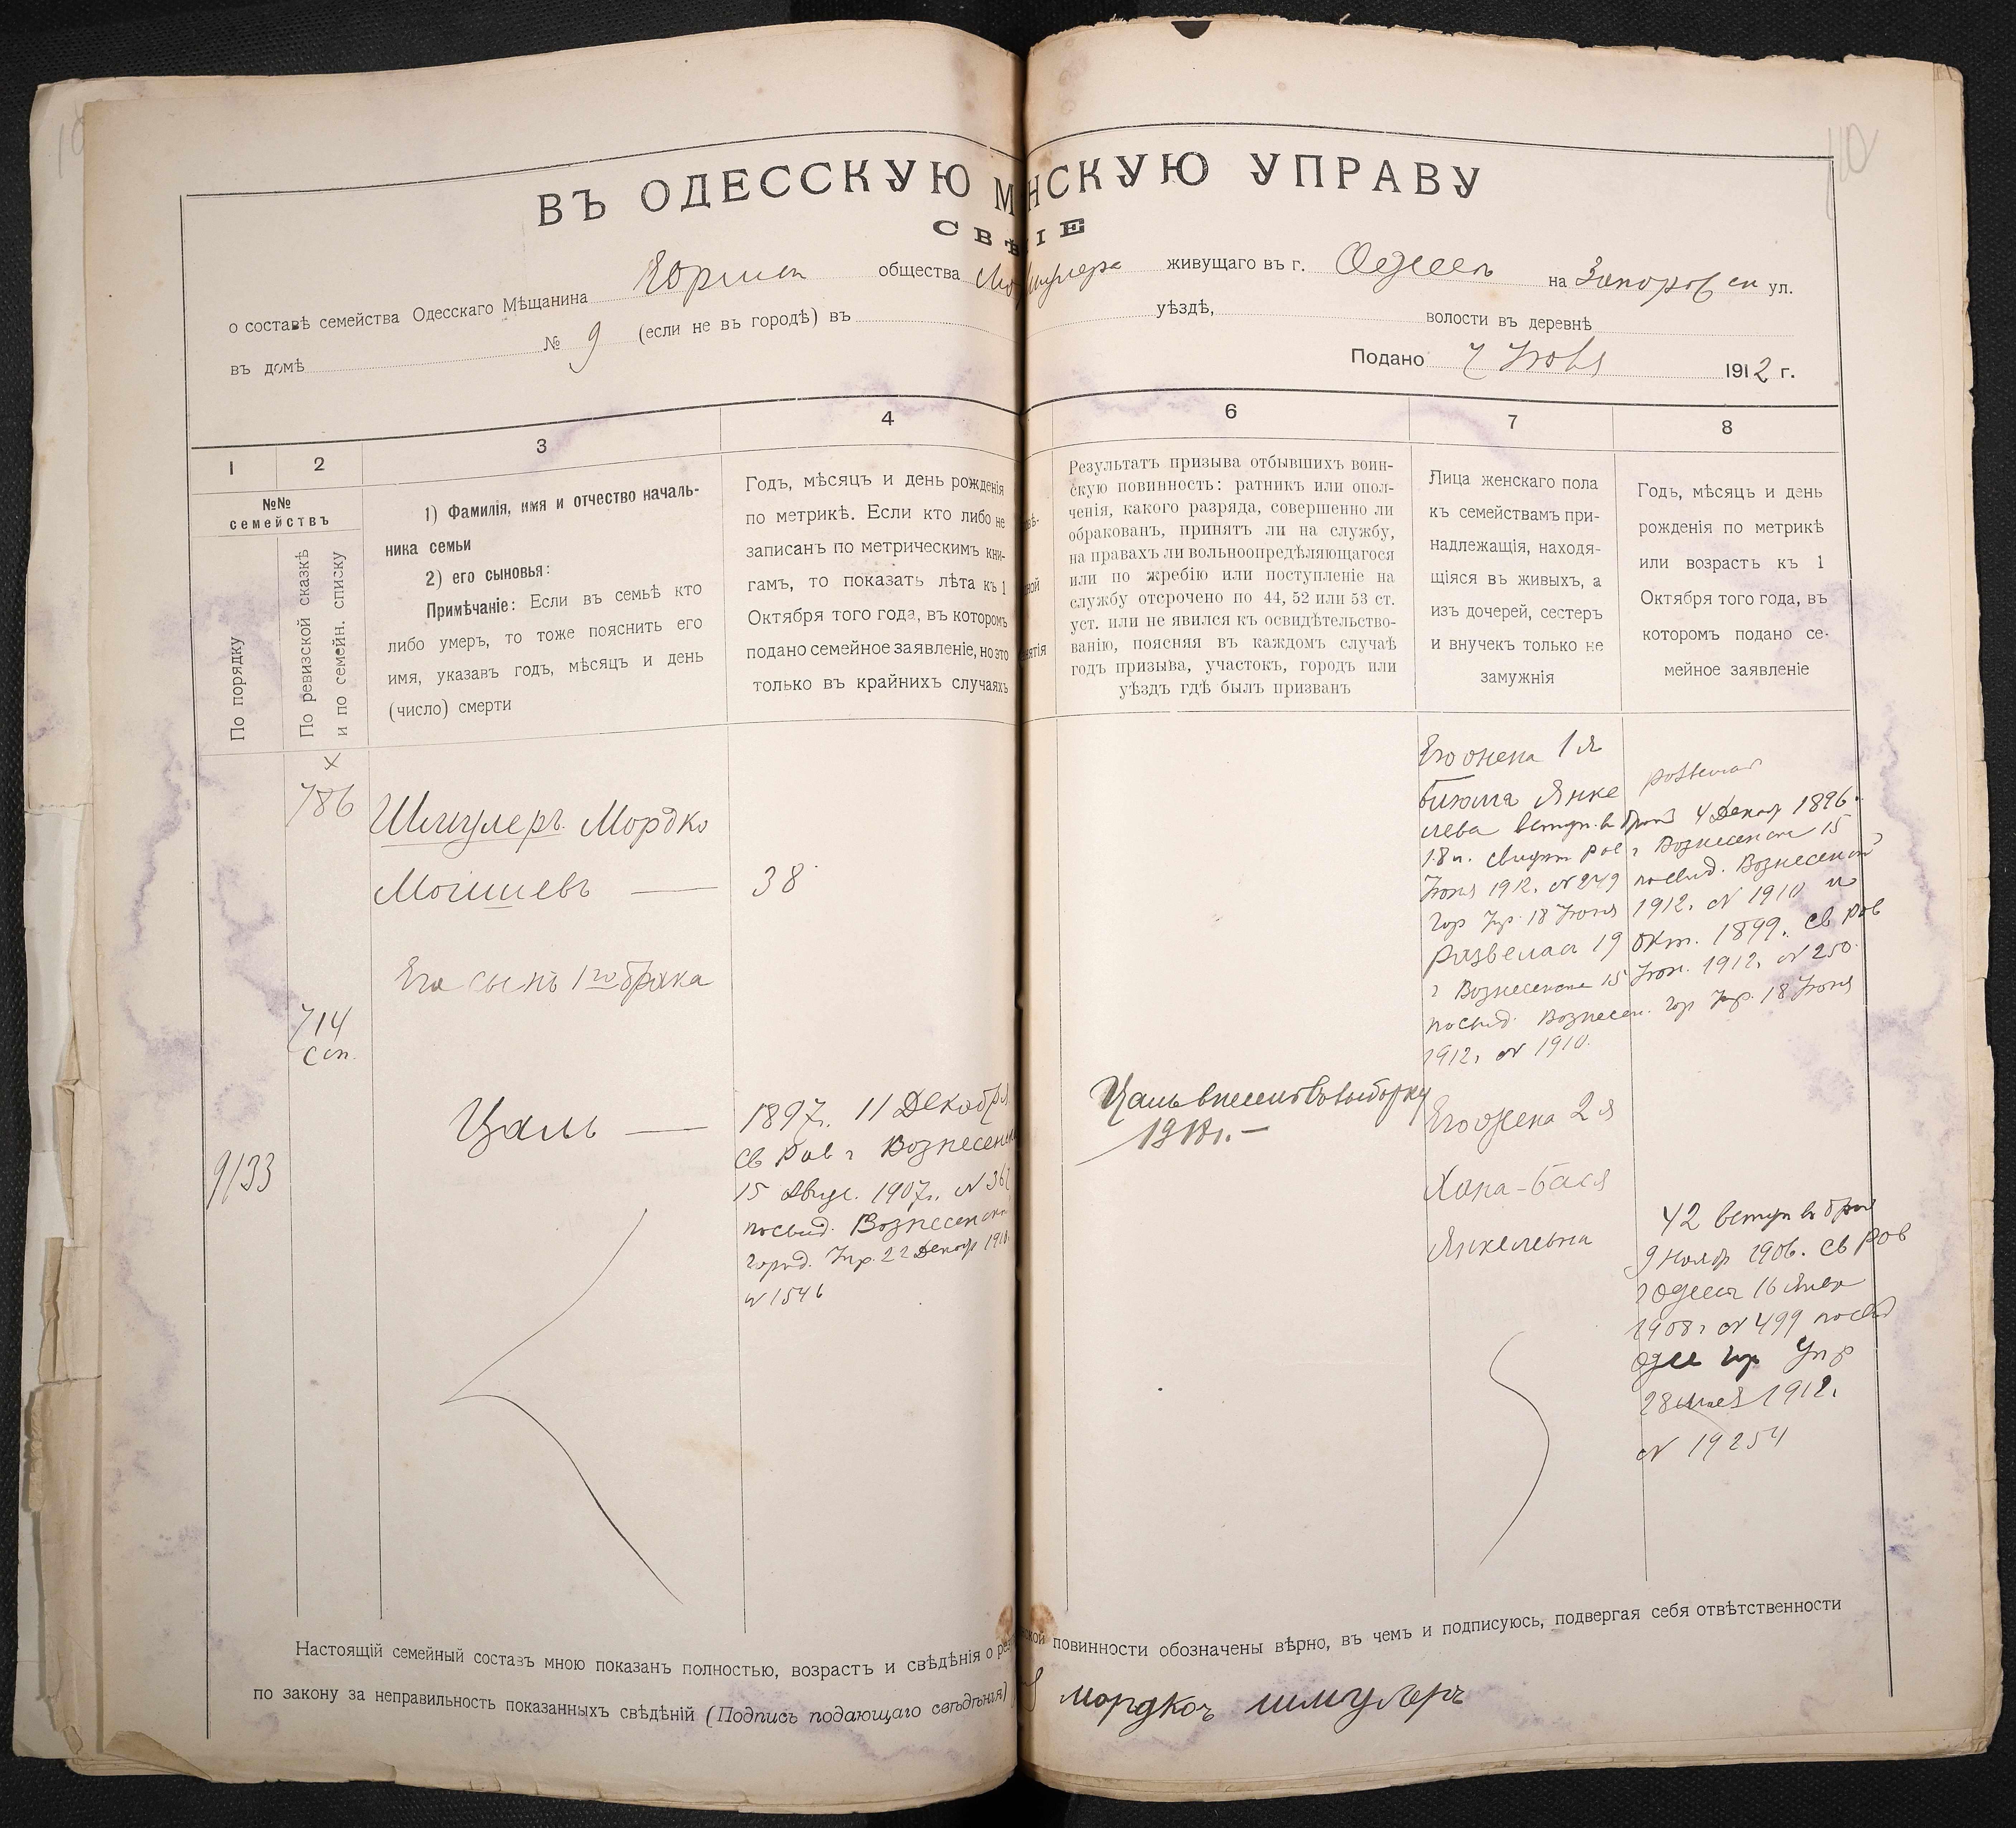 ВЪ ОДЕССКУЮ М НСКУЮ УПРАВУ
СВѢ ІЕ
о составѣ семейства Одесскаго Мѣщанина общества Шмулера живущаго въ г. Одессѣ на ул.
въ домѣ № 9 (если не въ городѣ) въ уѣздѣ, волости въ деревнѣ
Подано 7 1912 г.
1
2
3
4
6
7
8
№№
семействъ
По порядку
По ревизской сказкѣ
и по семейн. списку
1) Фамилія, имя и отчество началь-
ника семьи
2) его сыновья:
Примѣчаніе: Если въ семьѣ кто
либо умеръ, то тоже пояснить его
имя, указавъ годъ, мѣсяцъ и день
(число) смерти
Годъ, мѣсяцъ и день рожденія
по метрикѣ. Если кто либо не
записанъ по метрическимъ кни-
гамъ, то показать лѣта къ 1
Октября того года, въ которомъ
подано семейное заявленіе, но это
только въ крайнихъ случаяхъ
Результатъ призыва отбывшихъ воин-
скую повинность: ратникъ или опол-
ченія, какого разряда, совершенно ли
обракованъ, принятъ ли на службу,
на правахъ ли вольноопредѣляющагося
или по жребію или поступленіе на
службу отсрочено по 44, 52 или 53 ст.
уст. или не явился къ освидѣтельство-
ванію, поясняя въ каждомъ случаѣ
годъ призыва, участокъ, городъ или
уѣздъ гдѣ былъ призванъ
Лица женскаго пола
къ семействамъ при-
надлежащія, находя-
щіяся въ живыхъ, а
изъ дочерей, сестеръ
и внучекъ только не
замужнія
Годъ, мѣсяцъ и день
рожденія по метрикѣ
или возрастъ къ 1
Октября того года, въ
которомъ подано се-
мейное заявленіе
786
Шмулеръ Мордко
Мошиевъ — 38
Его сынъ 1го брака
714
сп.
9133
Цаль —
1897г. 11 Декабря
св Рав г Вознесенска
15 Авгус. 1907г. №
посвид. Вознесенской
город. Упр. 22 Декаб
№ 1546
Цаль внесенъ въ выборку
Его жена 1я
Янке
лева вступ. в брак 4 Декаб 1896.
18 л. свидет Рав г Вознесенска 15
Июня 1912. № 249 посвид. Вознесенской
Гор Упр 18 Июня 1912. № 1910 и
развелась 19 Окт. 1899. св Рав
г Вознесенска 15 Июн. 1912. № 250
посвид. Вознесен. Гор Упр. 18 Июня
1912. № 1910.
Его жена 2я
Хана-Бася
Янкелевна
42 вступ в брак
9 Нояб 1906. св Рав
г Одессы 16 Янва
1908 г № 499 посвид
Одес Гор Упр
28 мая 1912.
№ 19254
Настоящій семейный составъ мною показанъ полностью, возрастъ и свѣдѣнія о повинности обозначены вѣрно, въ чемъ и подписуюсь, подвергая себя отвѣтственности
по закону за неправильность показанныхъ свѣдѣній (Подпись подающаго свѣдѣнія) мордкоъ шмулеръ